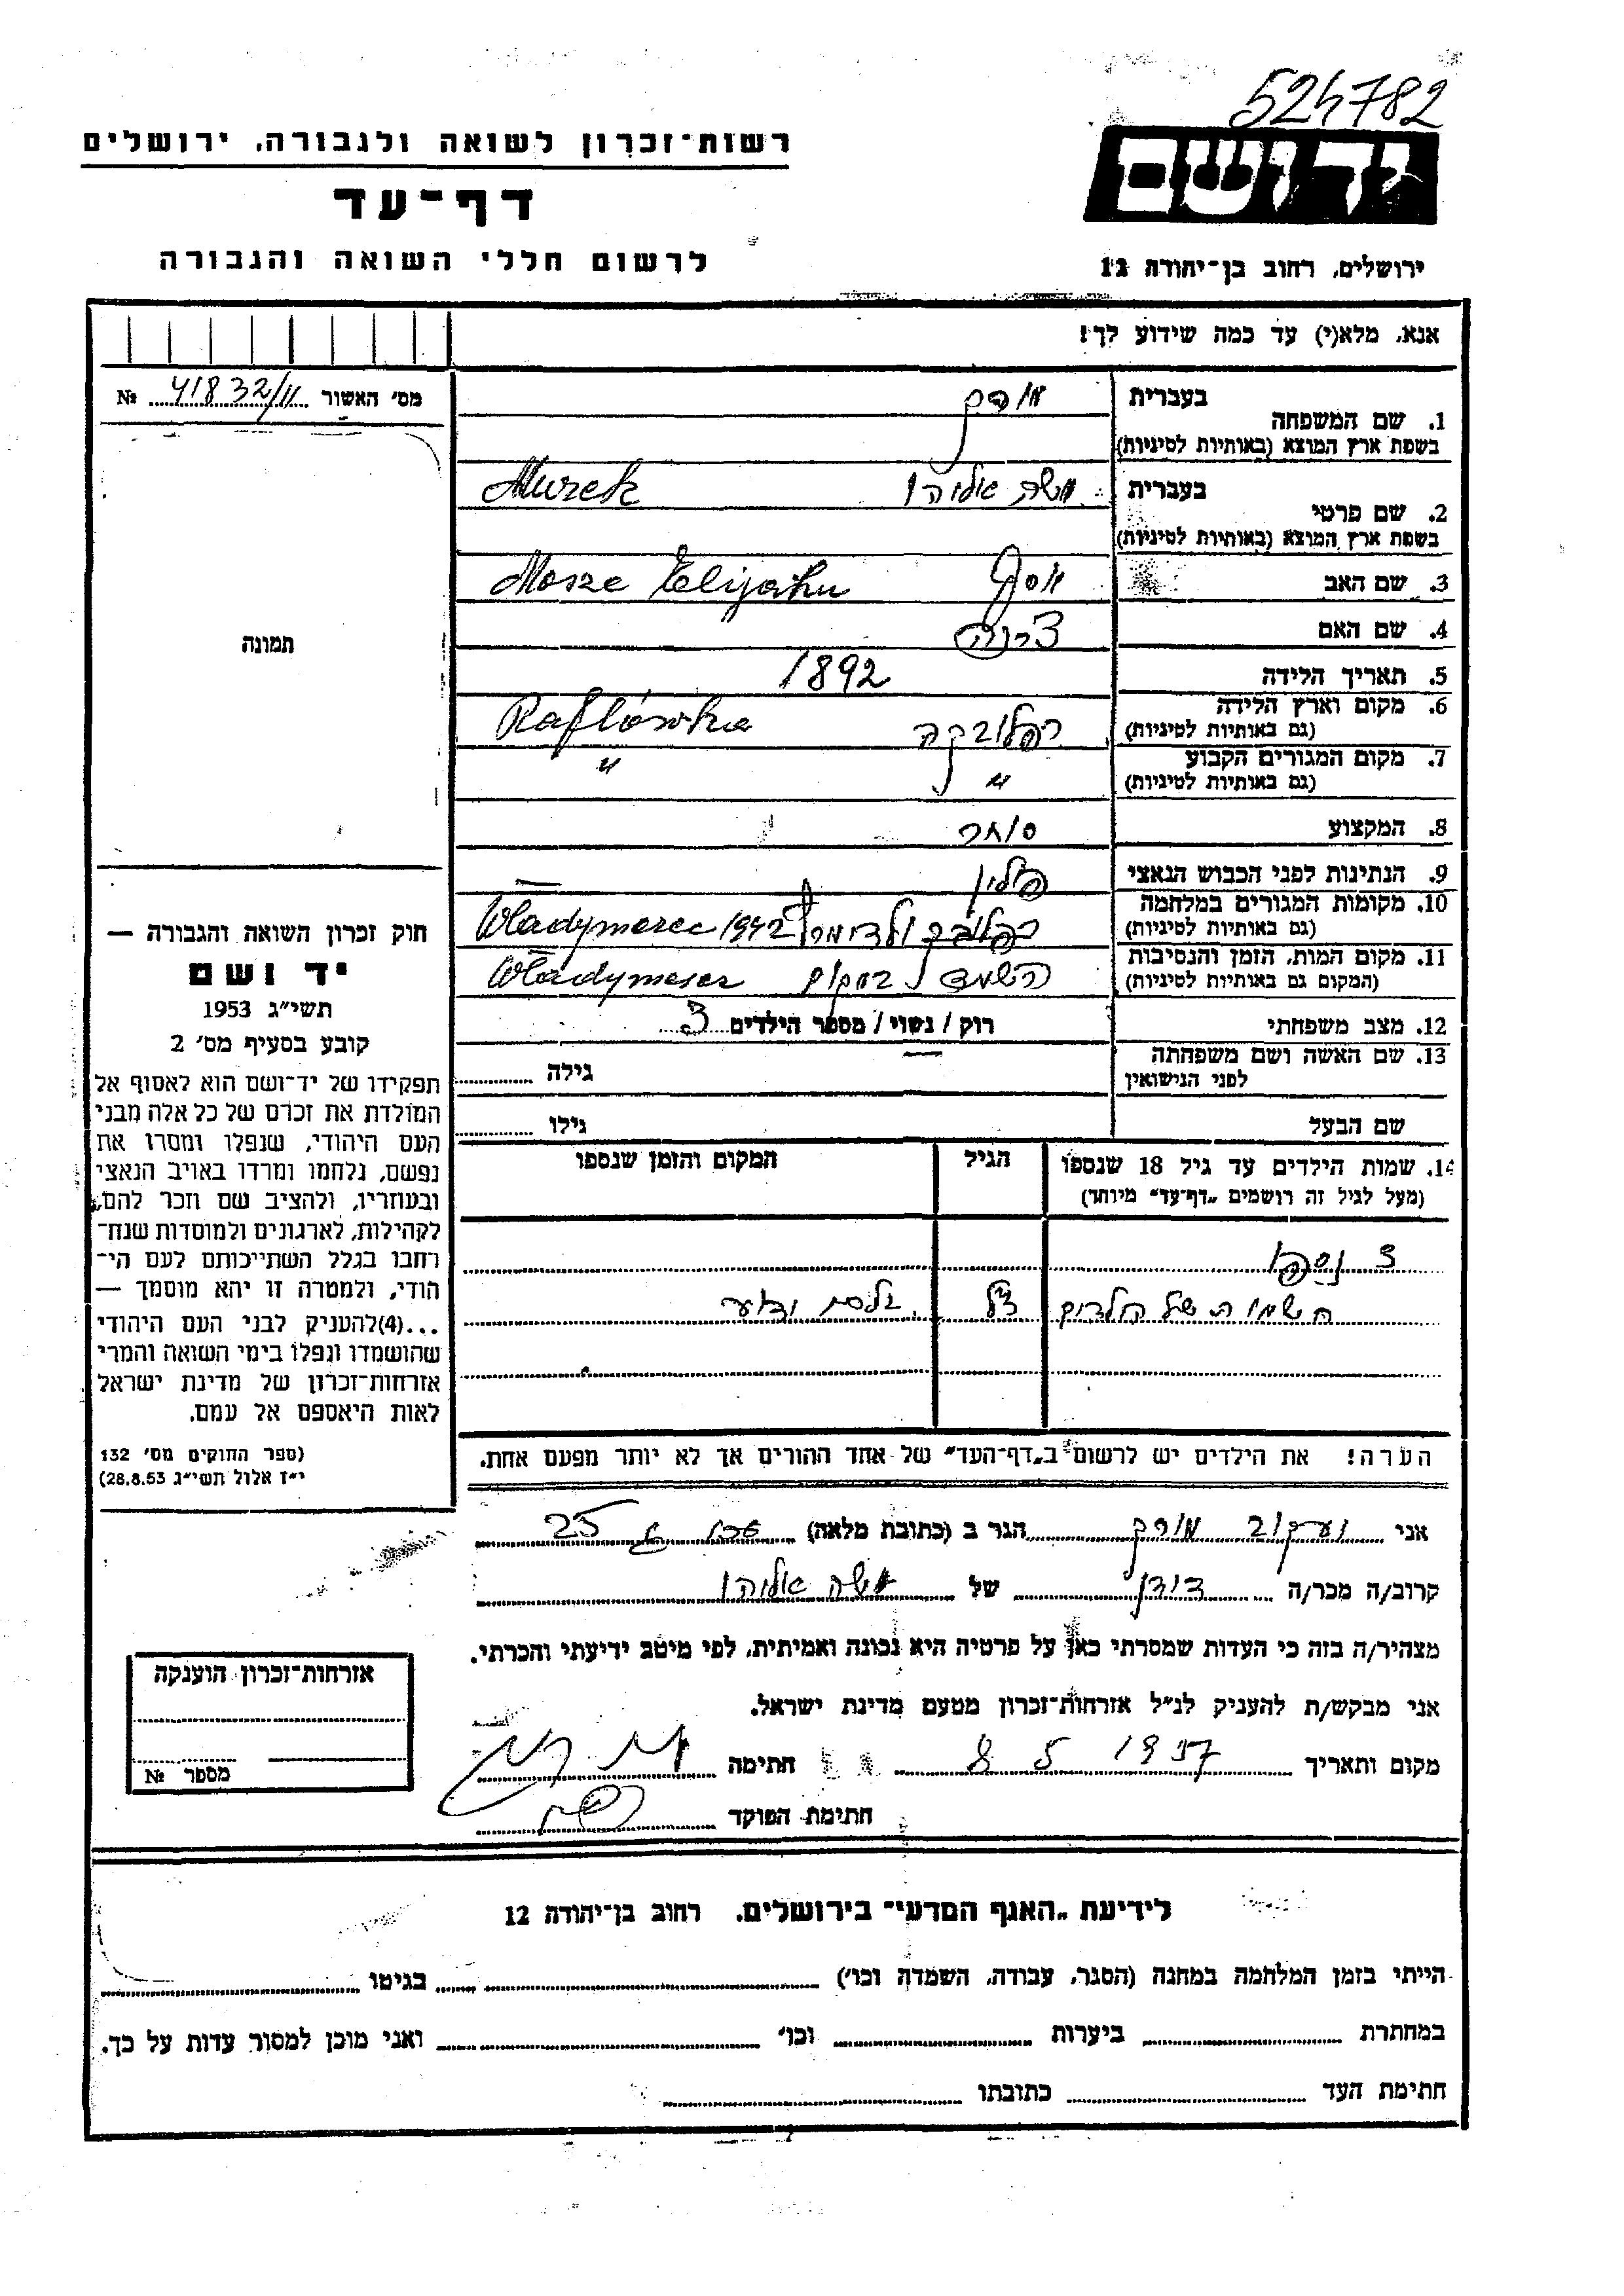 524782
רשות־זכרון לשואה ולגבורה, ירושלים
דף־עד
לרשום חללי השואה והגבורה
יד ושם
ירושלים, רחוב בן־יהודה 12
אנא, מלא(י) עד כמה שידוע לך!
מס׳ האשור 41832/11 №
תמונה
בעברית
1. שם המשפחה מורק
בשפת ארץ המוצא (באותיות לטיניות)
Murek
בעברית משה אליהו
2. שם פרטי
בשפת ארץ המוצא (באותיות לטיניות)
Mosze Elijahu
3. שם האב יוסף
4. שם האם
5. תאריך הלידה 1892
6. מקום וארץ הלידה רפלובקה Rafłówka
(גם באותיות לטיניות)
7. מקום המגורים הקבוע " "
(גם באותיות לטיניות)
8. המקצוע סוחר
9. הנתינות לפני הכבוש הנאצי פולין
10. מקומות המגורים במלחמה Wladymerec 1942
(גם באותיות לטיניות)
11. מקום המות, הזמן והנסיבות Wladymerec
(המקום גם באותיות לטיניות)
12. מצב משפחתי רוק / נשוי / מספר הילדים 3
13. שם האשה ושם משפחתה לפני הנישואין גילה
שם הבעל גילו
14. שמות הילדים עד גיל 18 שנספו הגיל המקום והזמן שנספו
(מעל לגיל זה רושמים „דף־עד״ מיוחד)
3 נספו
השמות של הילדים בלתי ידוע
הערה! את הילדים יש לרשום ב„דף־העד״ של אחד ההורים אך לא יותר מפעם אחת.
חוק זכרון השואה והגבורה —
יד ושם
תשי״ג 1953
קובע בסעיף מס׳ 2
תפקידו של יד־ושם הוא לאסוף אל
המולדת את זכרם של כל אלה מבני
העם היהודי, שנפלו ומסרו את
נפשם, נלחמו ומרדו באויב הנאצי
ובעוזריו, ולהציב שם וזכר להם,
לקהילות, לארגונים ולמוסדות שנח־
רחבו בגלל השתייכותם לעם הי־
הודי, ולמטרה זו יהא מוסמך —
...(4)להעניק לבני העם היהודי
שהושמדו ונפלו בימי השואה והמרי
אזרחות־זכרון של מדינת ישראל
לאות היאספם אל עמם.
(ספר החוקים מס׳ 132
י״ז אלול תשי״ג 28.8.53)
אני יעקוב מורק הגר ב (כתובת מלאה) 25
קרוב/ה מכר/ה דודן של משה אליהו
מצהיר/ה בזה כי העדות שמסרתי כאן על פרטיה היא נכונה ואמיתית, לפי מיטב ידיעתי והכרתי.
אני מבקש/ת להעניק לנ״ל אזרחות־זכרון מטעם מדינת ישראל.
מקום ותאריך חתימה
חתימת הפוקד
אזרחות־זכרון הוענקה
מספר №
לידיעת „האגף המדעי״ בירושלים, רחוב בן־יהודה 12
הייתי בזמן המלחמה במחנה (הסגר, עבודה, השמדה וכו׳) בגיטו
במחתרת ביערות וכו׳ ואני מוכן למסור עדות על כך.
חתימת העד כתובתו